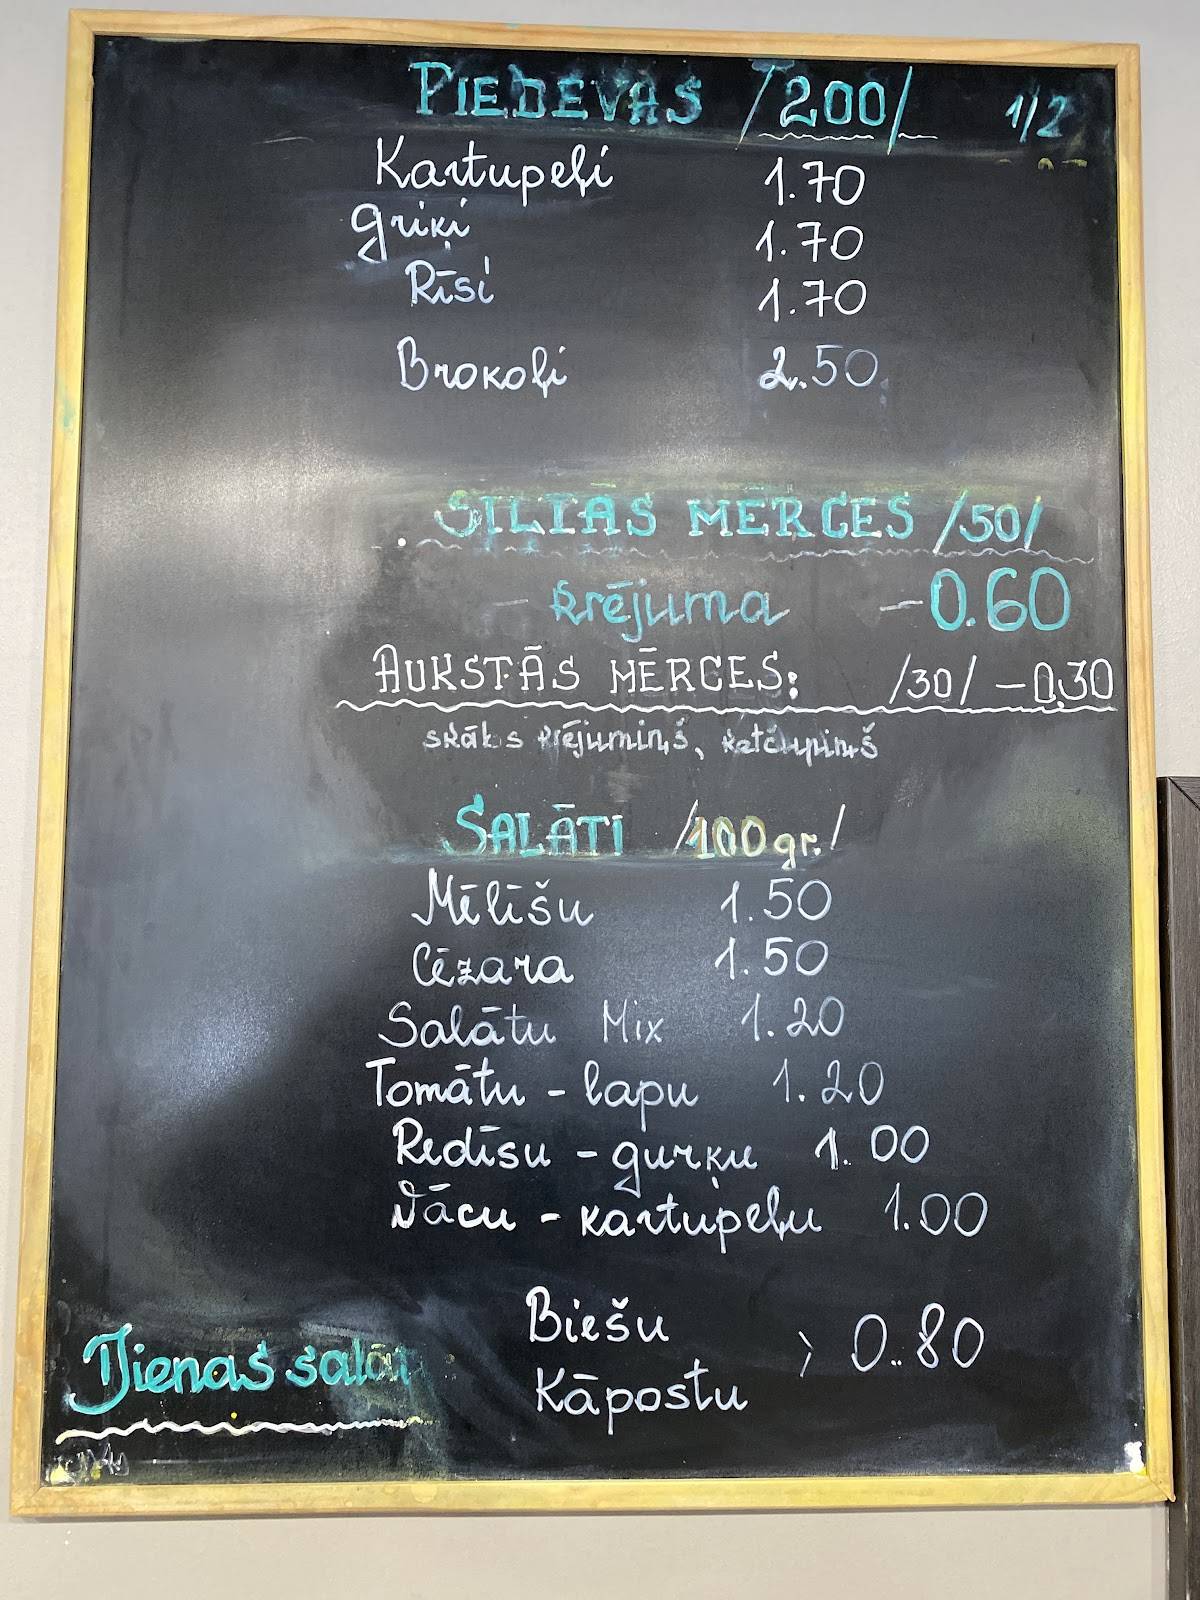 PIEDEVAS /200/ 1/2
Kartupeļi 1.70
Griķi 1.70
Rīsi 1.70
Brokoļi 2.50
SILTAS MĒRCES /50/
- krējuma - 0.60
AUKSTĀS MĒRCES: /30/ - 0,30
skābs krējumiņš, ketčupiņš
SALĀTI /100gr./
Mēlīšu 1.50
Cēzara 1.50
Salātu Mix 1.20
Tomātu - lapu 1.20
Redīsu - gurķu 1.00
Vācu - kartupeļu 1.00
Biešu
Kāpostu > 0.80
Dienas salāti